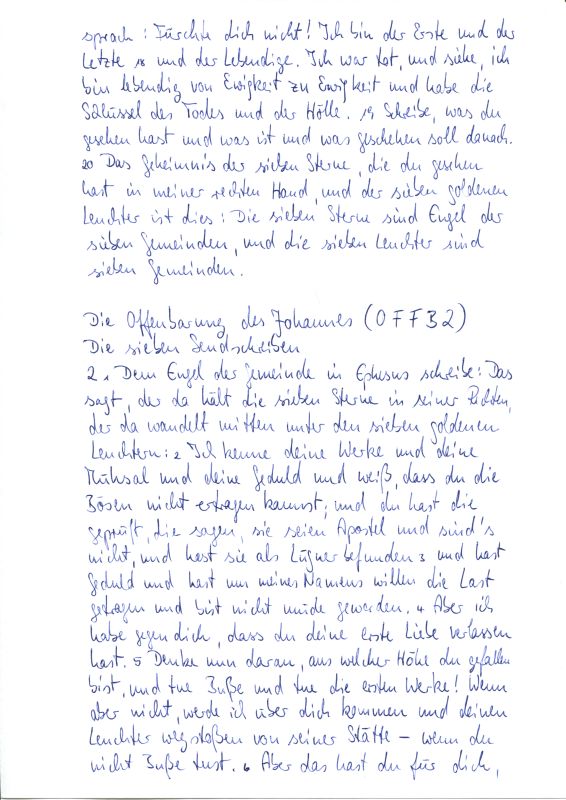 sprach: Fürchte dich nicht! Ich bin der Erste und der
Letzte 18 und der Lebendige. Ich war tot, und siehe, ich
bin lebendig von Ewigkeit zu Ewigkeit und habe die
Schlüssel des Todes und der Hölle. 19 Schreibe, was du
gesehen hast und was ist und was geschehen soll danach.
20 Das Geheimnis der sieben Sterne, die du gesehen
hast in meiner rechten Hand, und der sieben goldenen
Leuchter ist dies: Die sieben Sterne sind Engel der
sieben Gemeinden, und die sieben Leuchter sind
sieben Gemeinden.
Die Offenbarung des Johannes (OFFB2)
Die sieben Sendschreiben
2 1 Dem Engel der Gemeinde in Ephesus schreibe: Das
sagt, der da hält die sieben Sterne in seiner Rechten,
der da wandelt mitten unter den sieben goldenen
Leuchtern: 2 Ich kenne deine Werke und deine
Mühsal und deine Geduld und weiß, dass du die
Bösen nicht ertragen kannst; und du hast die
geprüft, die sagen, sie seien Apostel und sind's
nicht, und hast sie als Lügner befunden 3 und hast
Geduld und hast um meines Namens willen die Last
getragen und bist nicht müde geworden. 4 Aber ich
habe gegen dich, dass du deine erste Liebe verlassen
hast. 5 Denke nun daran, aus welcher Höhe du gefallen
bist, und tue Buße und tue die ersten Werke! Wenn
aber nicht, werde ich über dich kommen und deinen
Leuchter wegstoßen von seiner Stätte – wenn du
nicht Buße tust. 6 Aber das hast du für dich,